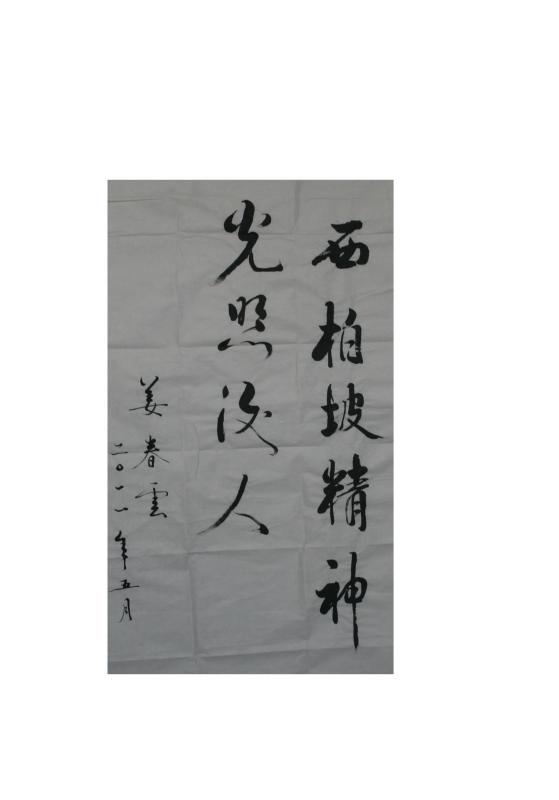 西柏坡精神
光照后人
姜春雲
二〇一一年五月